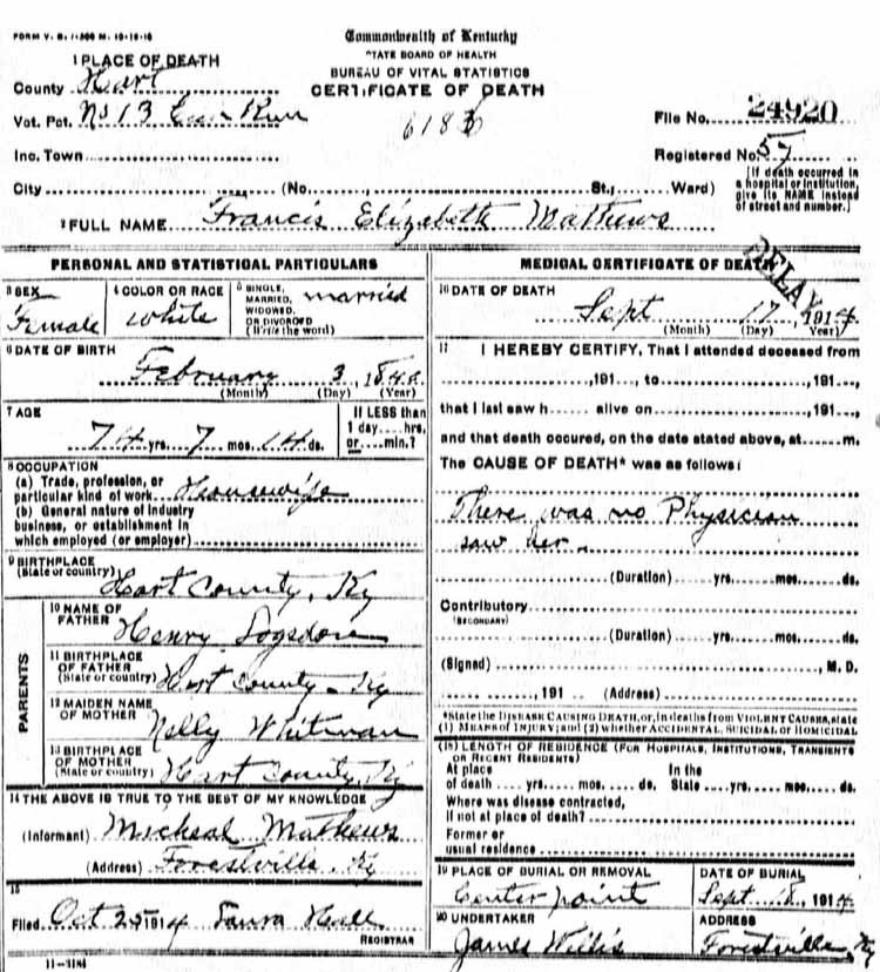 Commonwealth of Kentucky
STATE BOARD OF HEALTH
BUREAU OF VITAL STATISTICS
CERTIFICATE OF DEATH
1 PLACE OF DEATH
County Hart
Vot. Pct. No 13 Run
6183
File No. 24920
Inc. Town
Registered No. 57
City (No., St.; Ward)
[If death occurred in a hospital or institution, give its NAME instead of street and number.]
2 FULL NAME Francis Elizabeth Mathews
PERSONAL AND STATISTICAL PARTICULARS
3 SEX
Female
4 COLOR OR RACE
White
5 SINGLE, MARRIED, WIDOWED, OR DIVORCED (Write the word)
married
6 DATE OF BIRTH
February 3, 1840
(Month) (Day) (Year)
7 AGE
74 yrs. 7 mos. 14 ds.
If LESS than 1 day....hrs. or....min.?
8 OCCUPATION
(a) Trade, profession, or particular kind of work Housewife
(b) General nature of industry business, or establishment in which employed (or employer)
9 BIRTHPLACE
(State or country)
Hart County, Ky
PARENTS
10 NAME OF FATHER
Henry Logsdon
11 BIRTHPLACE OF FATHER
(State or country) Hart County - Ky
12 MAIDEN NAME OF MOTHER
Nelly Whitman
13 BIRTHPLACE OF MOTHER
(State or country) Hart County, Ky
14 THE ABOVE IS TRUE TO THE BEST OF MY KNOWLEDGE
(Informant) Micheal Mathews
(Address) Forestville, Ky
15
Filed Oct 25 1914 Laura Hall
REGISTRAR
11-3184
MEDICAL CERTIFICATE OF DEATH
DELAY
16 DATE OF DEATH
Sept 17, 1914
(Month) (Day) (Year)
17 I HEREBY CERTIFY, That I attended deceased from
,191..., to ,191...,
that I last saw h...... alive on ,191...,
and that death occured, on the date stated above, at......m.
The CAUSE OF DEATH* was as follows:
There was no Physician
saw her.
(Duration) yrs. mos. ds.
Contributory
(SECONDARY)
(Duration) yrs. mos. ds.
(Signed) , M. D.
,191 (Address)
*State the DISEASE CAUSING DEATH, or, in deaths from VIOLENT CAUSES, state
(1) MEANS OF INJURY; and (2) whether ACCIDENTAL, SUICIDAL or HOMICIDAL
(18) LENGTH OF RESIDENCE (FOR HOSPITALS, INSTITUTIONS, TRANSIENTS
OR RECENT RESIDENTS)
At place of death yrs. mos. ds. In the State yrs. mos. ds.
Where was disease contracted,
If not at place of death?
Former or
usual residence
19 PLACE OF BURIAL OR REMOVAL
Center point
DATE OF BURIAL
Sept 18, 1914
20 UNDERTAKER
James Willis
ADDRESS
Forestville, Ky